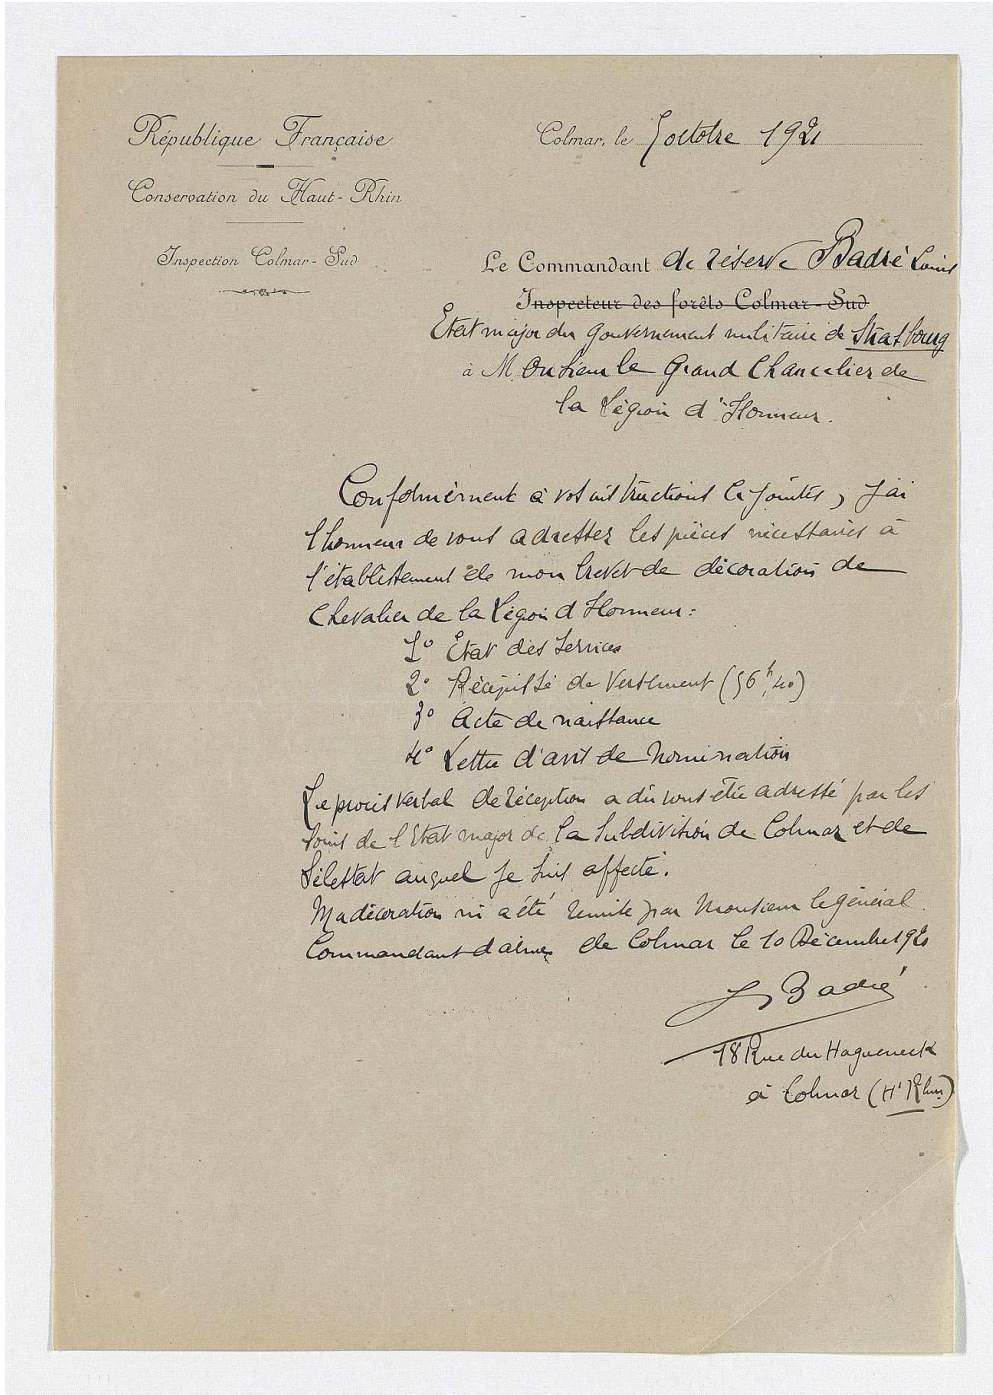 République Française
Conservation du Haut-Rhin
Inspection Colmar-Sud
Colmar, le 7 octobre 1921
Le Commandant de réserve Badré Louis
Inspecteur des forêts Colmar-Sud
Etat major du gouvernement militaire de Strasbourg
à Monsieur le Grand Chancelier de
la Légion d'Honneur.
Conformément à vos instructions ci jointes, j'ai
l'honneur de vous adresser les pièces nécessaires à
l'établissement de mon brevet de décoration de
Chevalier de la Légion d'Honneur :
1° Etat des Services
2° Récépissé de Versement (56f,40)
3° Acte de naissance
4° Lettre d'avis de nomination
Le procès verbal de réception a du vous être adressé par les
soins de l'Etat major de la Subdivision de Colmar et de
Sélestat auquel je suis affecté.
Ma décoration m'a été remise par Monsieur le général
Commandant d'armes de Colmar le 10 Décembre 1920
Badré
18 Rue du Hagueneck
à Colmar (Ht Rhin)